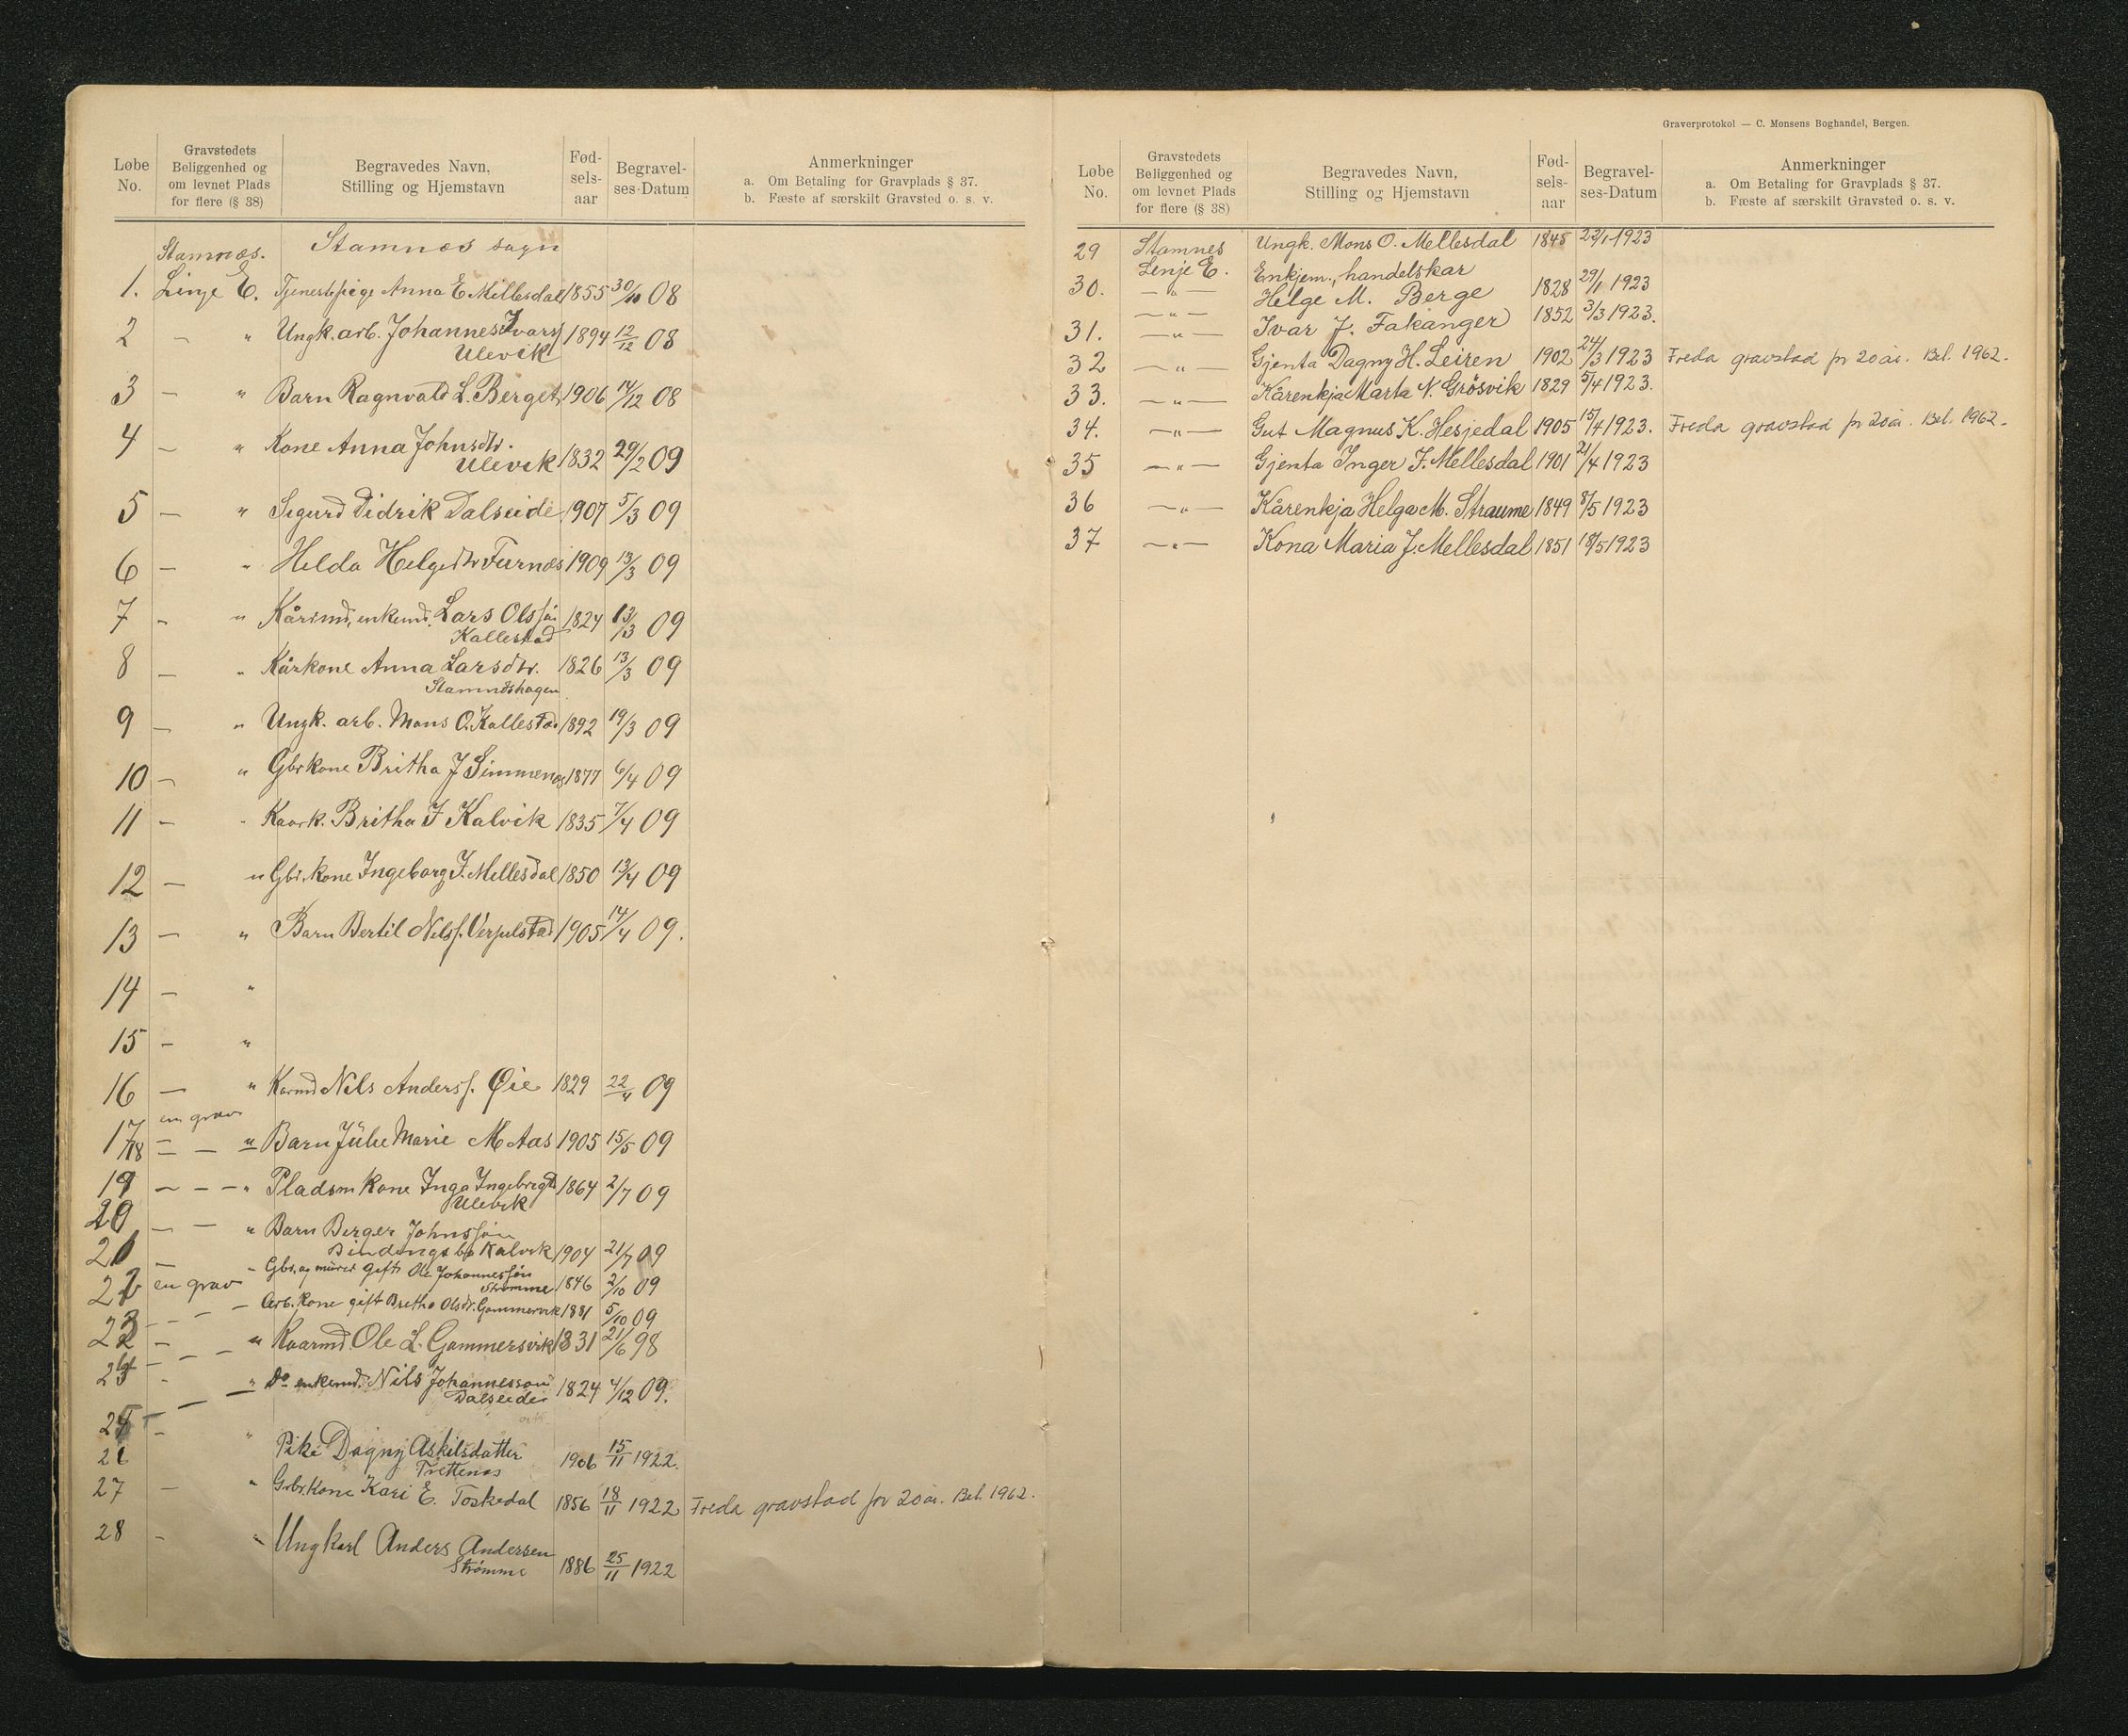 Løbe No.
Gravstedets Beliggenhed og om levnet Plads for flere (§ 38)
Begravedes Navn, Stilling og Hjemstavn
Fød-sels-aar
Begravel-ses-Datum
Anmerkninger
a. Om Betaling for Gravplads § 37.
b. Fæste af særskilt Gravsted o. s. v.
Stamnæs. Stamnæs sogn
1. Linje E. Tjenestepige Anna E Millesdal 1855 30/10 08
2 — " Ungk. arb. Johannes Ivarss
Ulevik 1894 12/12 08
3 — " Barn Ragnvald L. Berget 1906 14/12 08
4 — " Kone Anna Johnsdtr.
Ulevik 1832 29/2 09
5 — " Sigurd Didrik Dalseide 1907 5/3 09
6 — " Helda Helgedtr Furnæs 1909 13/3 09
7 — " Kårmd, enkemd. Lars Olssøn
Kallestad 1824 13/3 09
8 — " Kårkone Anna Larsdtr. 1826 13/3 09
Stamnæshagen
9 — " Ungk. arb. Mons O. Kallestad 1892 19/3 09
10 — " Gbrkone Britha J Simmenæs 1877 6/4 09
11 — " Kaark. Britha J Kalvik 1835 7/4 09
12 — " Gbr. kone Ingeborg J. Mellesdal 1850 13/4 09
13 — " Barn Bertil Nilss. 1905 14/4 09.
14 — "
15 — "
16 — " Karmd Nils Anderss. Øie 1829 22/4 09
en grav
17/18 — — " Barn Julie Marie M Aas 1905 15/5 09
19 — — — " Pladsm kone Inga Ingebregt 1864 2/7 09
Ulevik
20 — — " Barn Berger Johnssøn
21 — Bindingsbø Kalvik 1904 21/7 09
" Gbr. og murer gift Ole Johannessøn
22 en grav Strømme 1846 2/10 09
— — — Arb. kone gift Britha Olsdr. Gammersvik 1881 5/10 09
23 — " Kaarmd. Ole L. Gammersvik 1831 21/6 98
— — —
24 - " Do enkemd. Nils Johannesson
Dalseide 1824 4/12 09.
25 — "
26 Pike Dagny Askilsdatter
Trettenes 1906 15/11 1922.
27 — " Gbr. kone Kari E. Toskedal 1856 18/11 1922 Freda gravstad for 20 år. Bet. 1962.
28 — " Ungkarl Anders Andersen
Strømme 1886 25/11 1922
Graverprotokol — C. Monsens Boghandel, Bergen.
Løbe No.
Gravstedets Beliggenhed og om levnet Plads for flere (§ 38)
Begravedes Navn, Stilling og Hjemstavn
Fød-sels-aar
Begravel-ses-Datum
Anmerkninger
a. Om Betaling for Gravplads § 37.
b. Fæste af særskilt Gravsted o. s. v.
29 Stamnes Ungk. Mons O. Mellesdal 1845 1923
Lenje E. Enkjem., handelskar
30. — " — Helge M. Berge 1828 29/1 1923
— " —
31. — " — Ivar J. Fakanger 1852 3/3 1923.
32 — " — Gjenta Dagny H. Leiren 1902 24/3 1923 Freda gravstad for 20 år. Bet. 1962.
33. — " — Kårenkja Marta N. Grøsvik 1829 5/4 1923.
34. — " — Gut Magnus K. Hesjedal 1905 15/4 1923. Freda gravstad for 20 år. Bet. 1962.
35 — " — Gjenta Inger J. Mellesdal 1901 21/4 1923
36 — " — Kårenkja Helga M. Straume 1849 8/5 1923
37 — " — Kona Maria J. Mellesdal 1851 18/5 1923